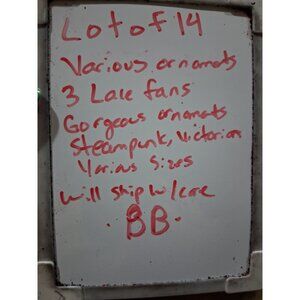 Lot of 14
Various ornamets
3 Lace fans
Gorgeous ornamets
Steampunk, Victorian
Various Sizes
Will ship w/care
BB